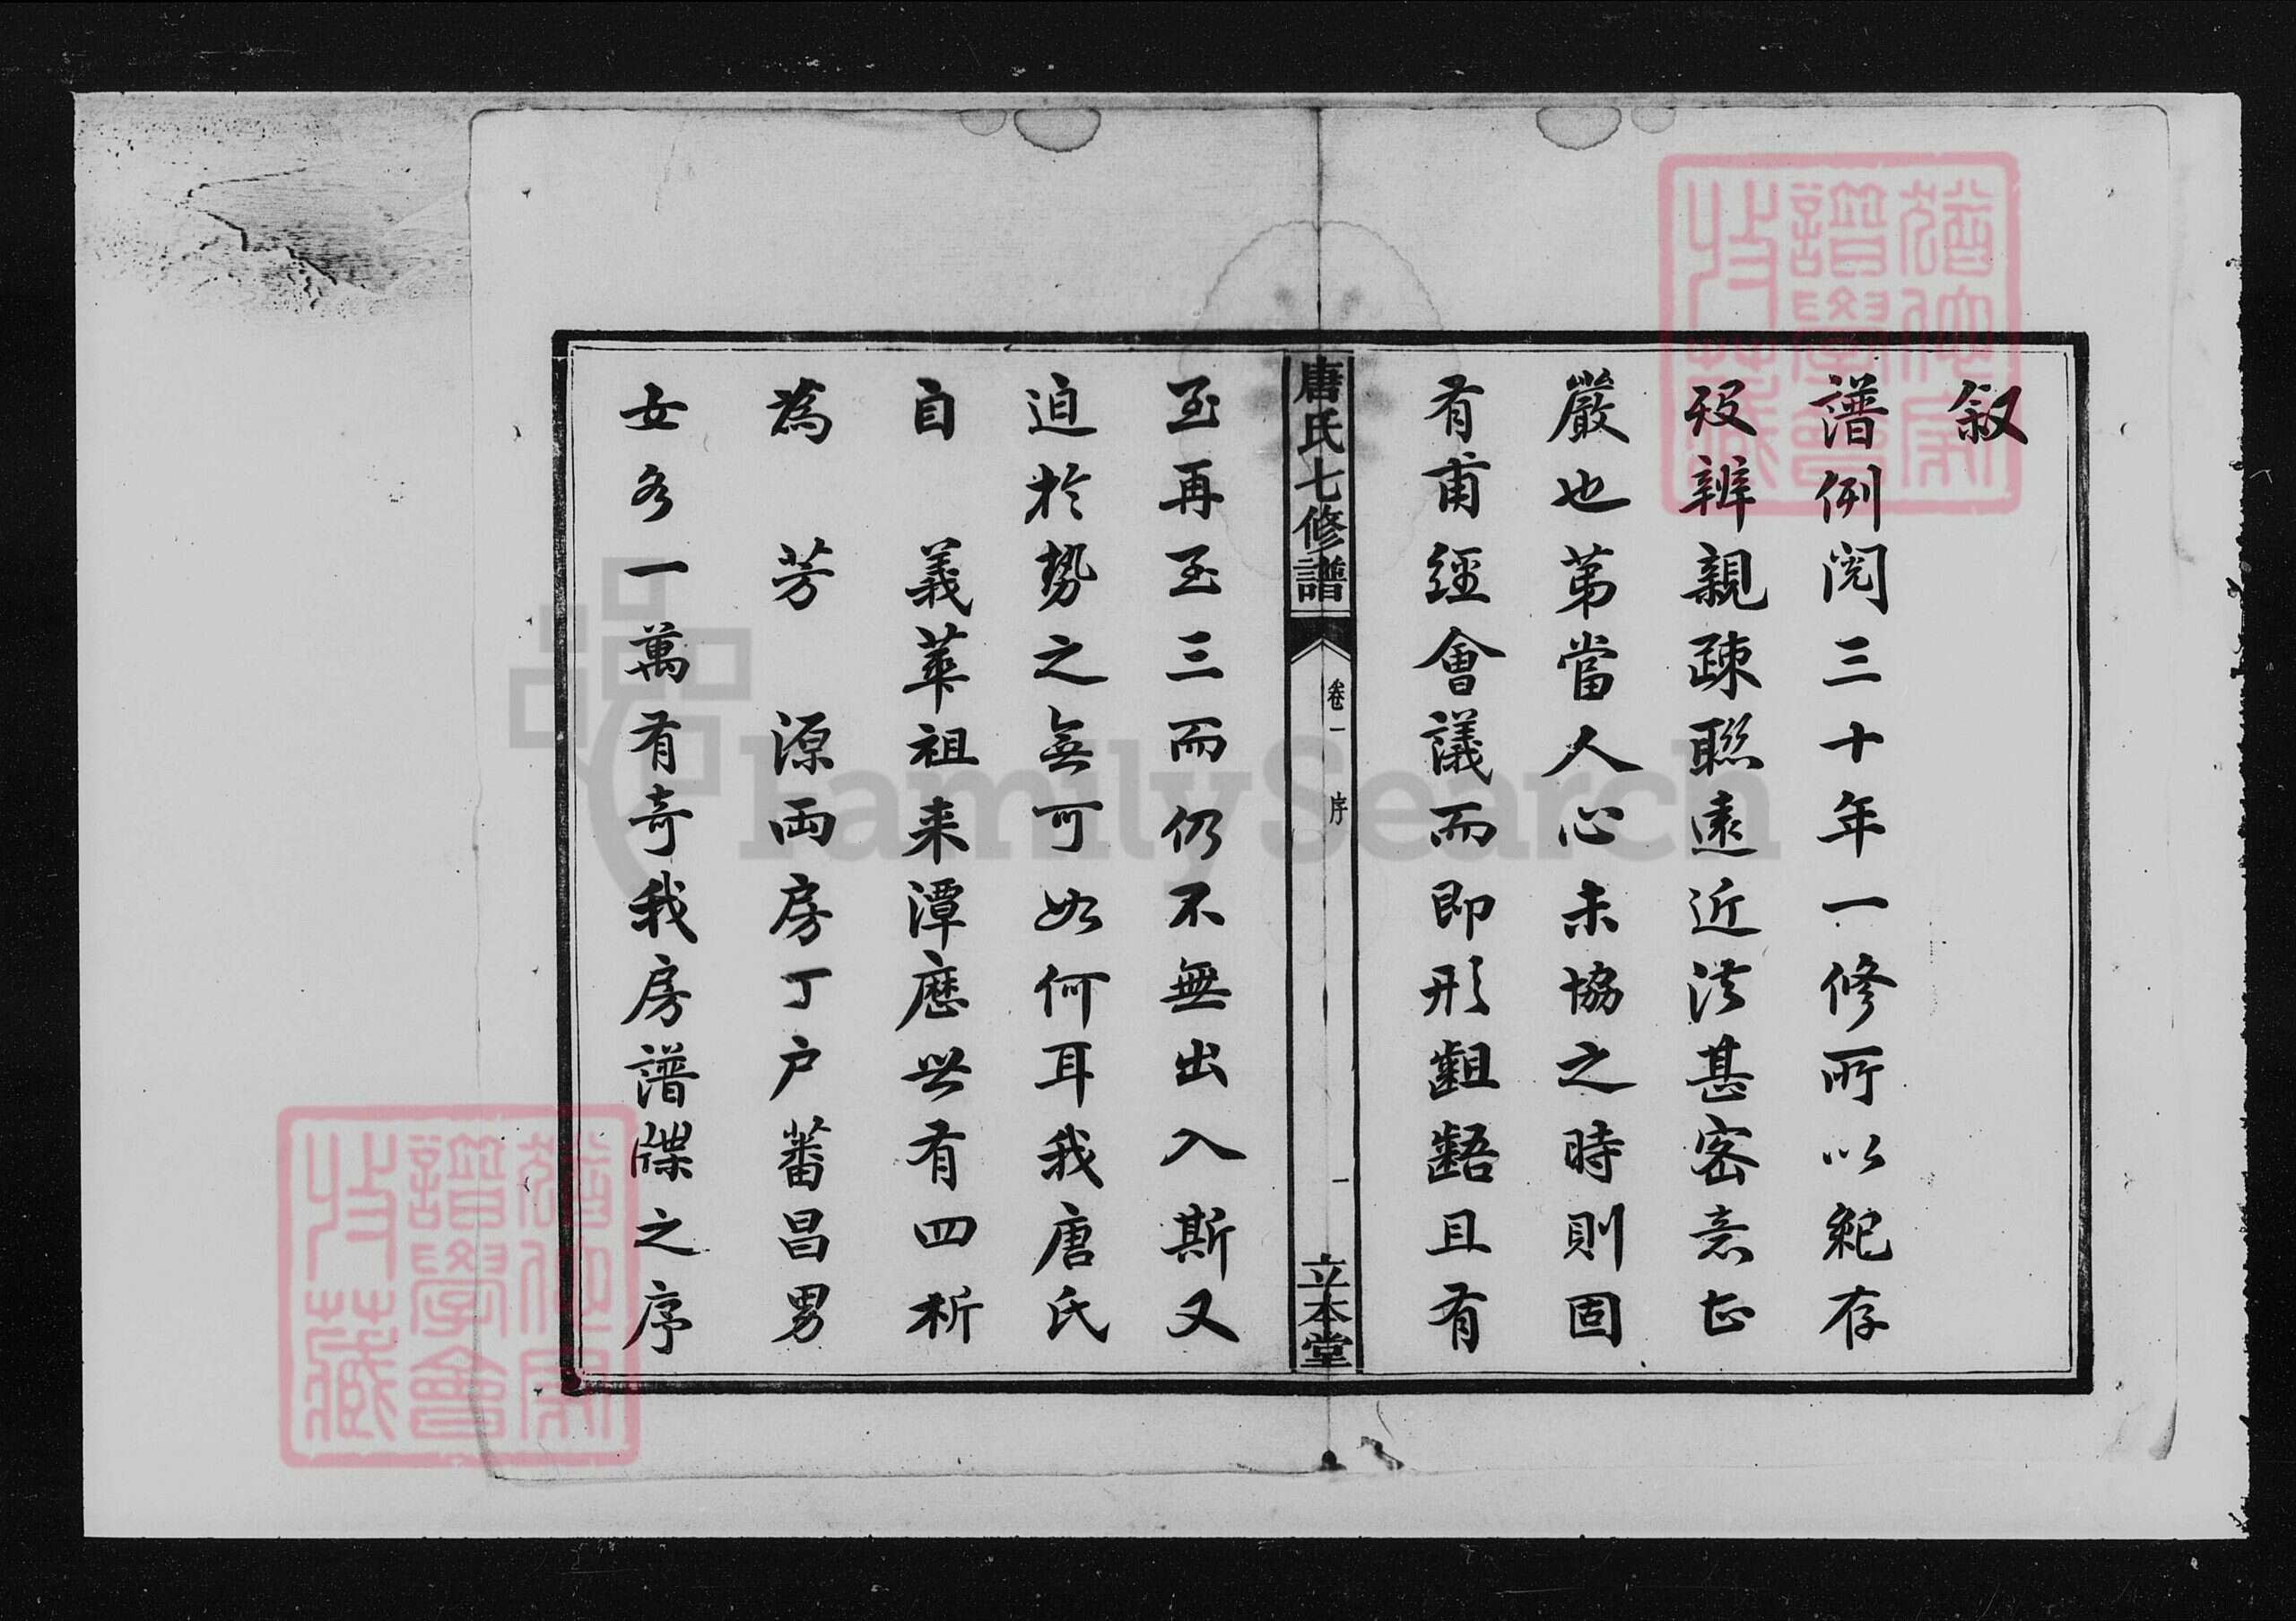 叙
譜例閱三十年一修所以紀存
歿辨親疎聯遠近法甚密意甚
嚴也第當人心未協之時則固
有甫經會議而即形齟齬且有
唐氏七修譜
卷一
序
一
立本堂
至再至三而仍不無出入斯又
迫於勢之無可如何耳我唐氏
自 義華祖来潭歷世有四析
為 芳 源両房丁户蕃昌男
女各一萬有奇我房譜牒之序
FamilySearch
譜學會
收藏
譜學會
收藏